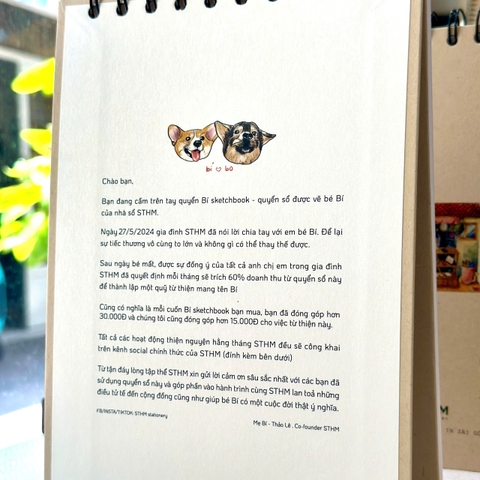 bí ♡ bo
Chào bạn,
Bạn đang cầm trên tay quyển Bí sketchbook - quyển sổ được vẽ bé Bí
của nhà số STHM.
Ngày 27/5/2024 gia đình STHM đã nói lời chia tay với em bé Bí. Để lại
sự tiếc thương vô cùng to lớn và không gì có thể thay thế được.
Sau ngày bé mất, được sự đồng ý của tất cả anh chị em trong gia đình
STHM đã quyết định mỗi tháng sẽ trích 60% doanh thu từ quyển sổ này
để thành lập một quỹ từ thiện mang tên Bí
Cũng có nghĩa là mỗi cuốn Bí sketchbook bạn mua, bạn đã đóng góp hơn
30.000Đ và chúng tôi cũng đóng góp hơn 15.000Đ cho việc từ thiện này.
Tất cả các hoạt động thiện nguyện hằng tháng STHM đều sẽ công khai
trên kênh social chính thức của STHM (đính kèm bên dưới)
Từ tận đáy lòng tập thể STHM xin gửi lời cảm ơn sâu sắc nhất với các bạn đã
sử dụng quyển sổ này và góp phần vào hành trình cùng STHM lan toả những
điều tử tế đến cộng đồng cũng như giúp bé Bí có một cuộc đời thật ý nghĩa.
FB/INSTA/TIKTOK: STHM stationery
Mẹ Bí - Thảo Lê . Co-founder STHM